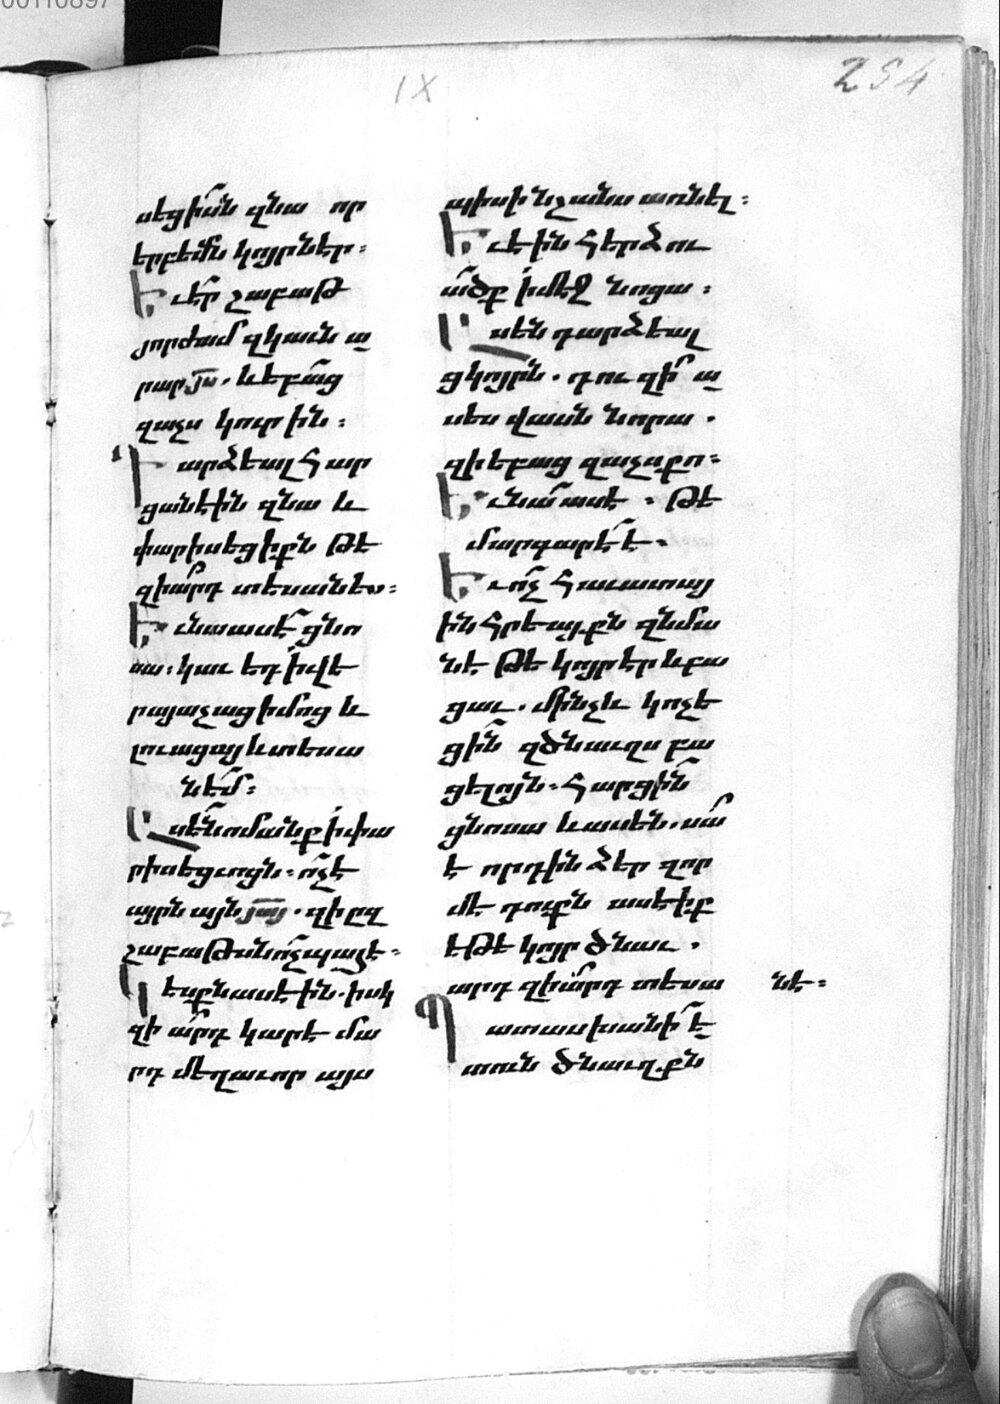 00110897
IX
254
սեցի՟ան զնա որ
երբեմն կոյրն էր։
Եւ է՟ր շաբաթ
յորժամ զկաւն ա
րար յ՟ս. և եբա՟ց
զաչս կուրին։
Դարձեալ հար
ցանէին զնա և
փարիսեցիքն թէ
զիա՟րդ տեսաներ։
Եւ նա ասէ՟ ցնո
սա։ կաւ եդ ի վե
րայ աչաց իմոց և
լուացայ և տեսա
նեմ։
Ասե՟ն ոմանք ի փա
րիսեցւոցն. ո՟չ է
այրն այն յ՟այ. զի ըզ
շաբաթսն ո՟չ պահէ։
Կէսքն ասէին. իսկ
զի ա՟րդ կարէ մա
րդ մեղաւոր այս
պիսի նշանս առնել։
Եւ էին հերձու
ա՟ծք ի մէջ նոցա։
Ասեն դարձեալ
ցկոյրն. դու զի՟ ա
սես վասն նորա.
զի եբաց զաչս քո։
Եւ նա՟ ասէ. թէ
մարգարէ՟ է։
Եւ ո՟չ հաւատայ
ին հրեայքն զնմա
նէ թէ կոյր էր և բա
ցաւ. մինչև կոչե
ցի՟ն զծնաւղս բա
ցելոյն. հարցի՟ն
ցնոսա և ասեն. սա՟
է որդին ձեր զոր
մէ դուքն ասէիք
եթէ կոյր ծնաւ.
արդ զիա՟րդ տեսա նէ։
Պատասխանի՟ ե
տուն ծնաւղքն